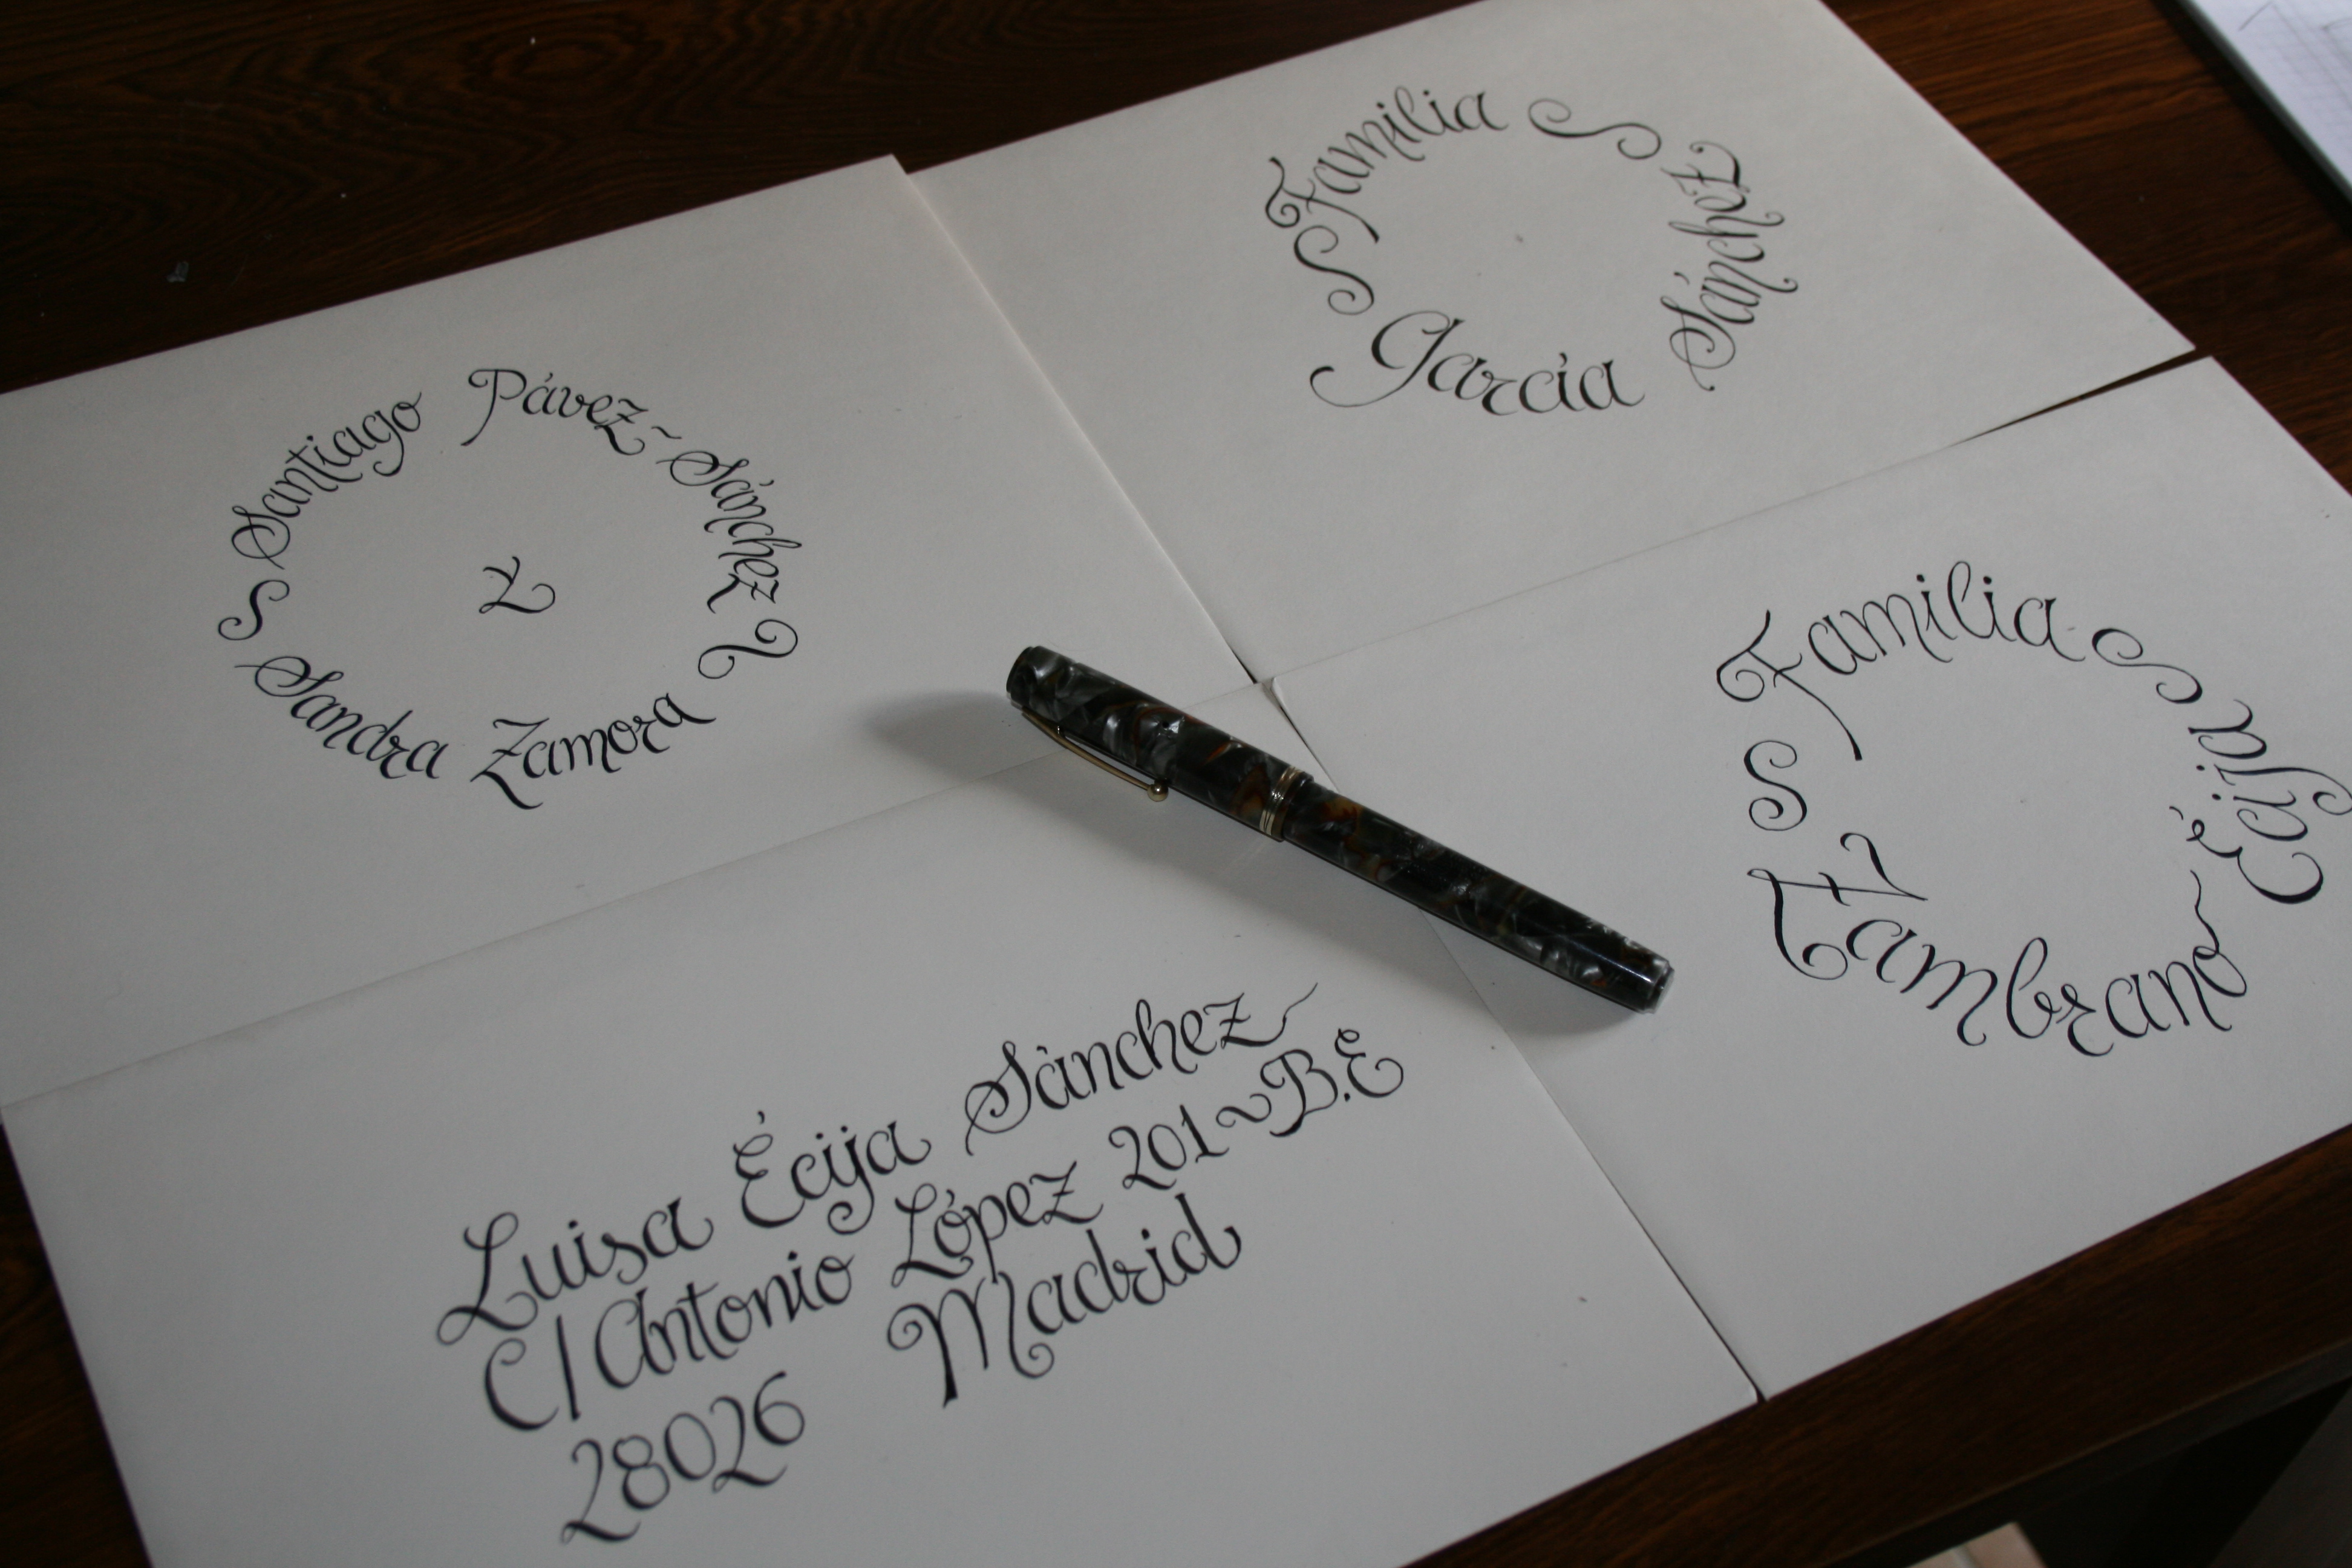 Santiago Pávez~Sánchez
y
Sandra Zamora
Familia
Sánchez
García
Familia
Écija
Zambrano
Luisa Écija Sánchez
C/ Antonio López 201~B.E
28026 Madrid